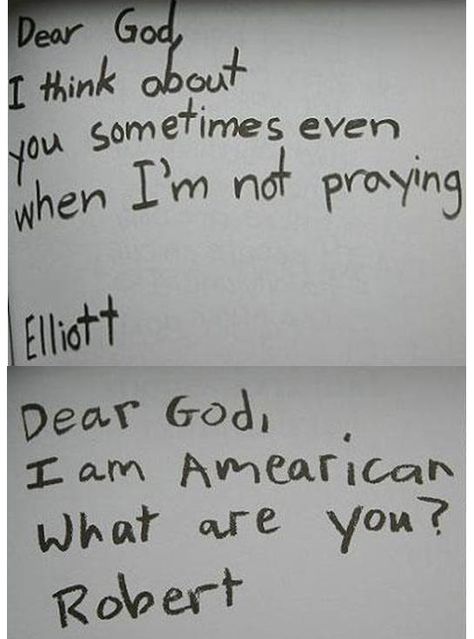 Dear God,
I think about
you sometimes even
when I'm not praying
Elliott
Dear God,
I am Amearican
What are you?
Robert